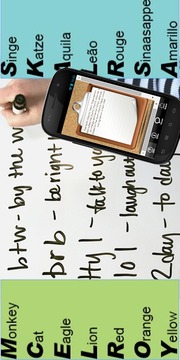 Monkey
Cat
Eagle
Lion
Red
Orange
Yellow
btw - by the w
brb - be right
ttyl - talk to yo
lol - laugh out
2day - to da
Singe
Katze
Aquila
Leão
Rouge
Sinaasappe
Amarillo